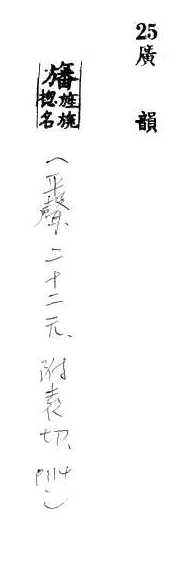 25廣韻
旛旌旗揔名
(平聲、二十二元、附袁切、P114)